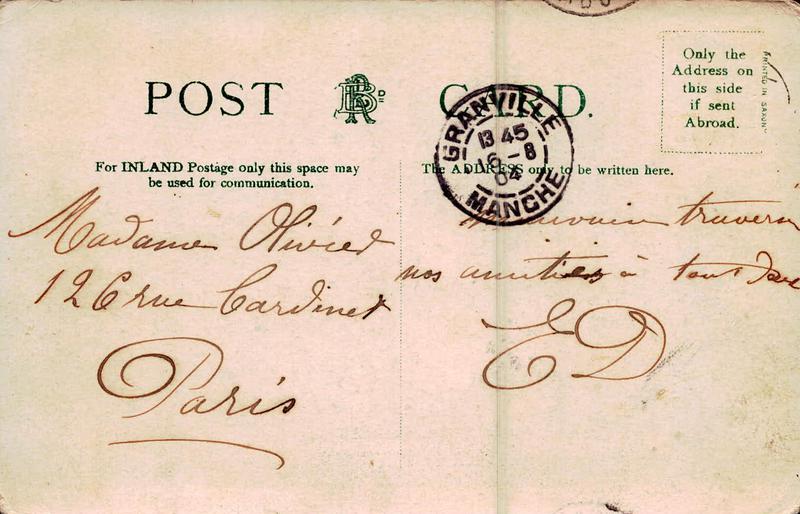 POST CARD.
Only the
Address on
this side
if sent
Abroad.
PRINTED IN SAXONY
For INLAND Postage only this space may
be used for communication.
The ADDRESS only to be written here.
GRANVILLE
13 45
16 - 8
04
MANCHE
Madame Olivied
126 rue Cardinet
Paris
nos amitiés à tous deux
ED